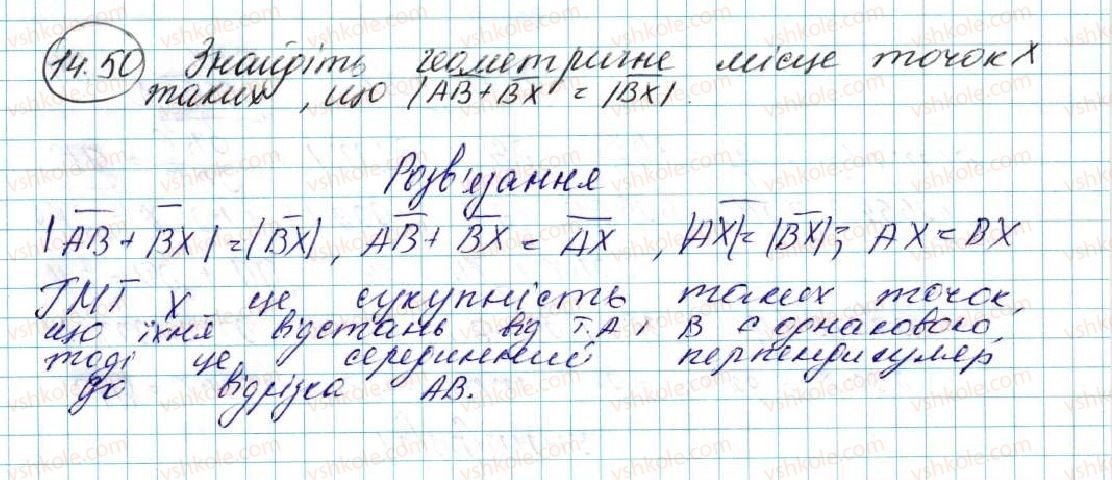 14.50 Знайдіть геометричне місце точок X
таких, що |AB + BX| = |BX|.
Розв'язання
|AB + BX| = |BX|, AB + BX = AX, |AX| = |BX|; AX = BX
ГМТ X це сукупність таких точок,
що їхня відстань від т. A і B є однаковою,
тоді це серединний перпендикуляр
до відрізка AB.